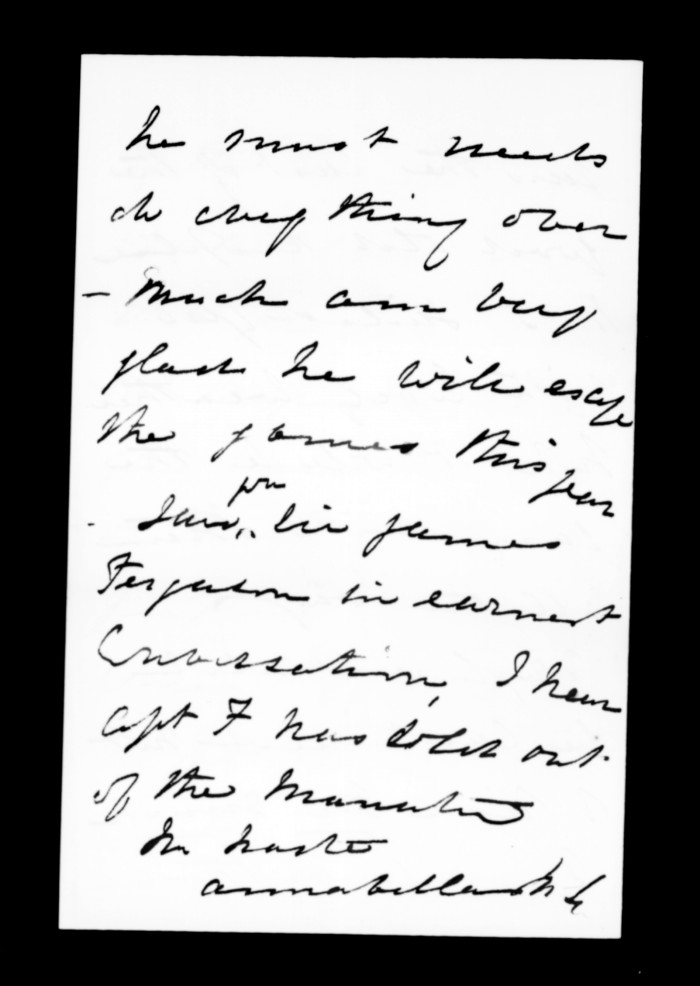 he must needs
do every thing over
- much am very
glad he will escape
the games this year
- Saw you Sir James
Ferguson in earnest
Conversation, I hear
Capt F has sold out
of the Manawatu
In haste
Annabella